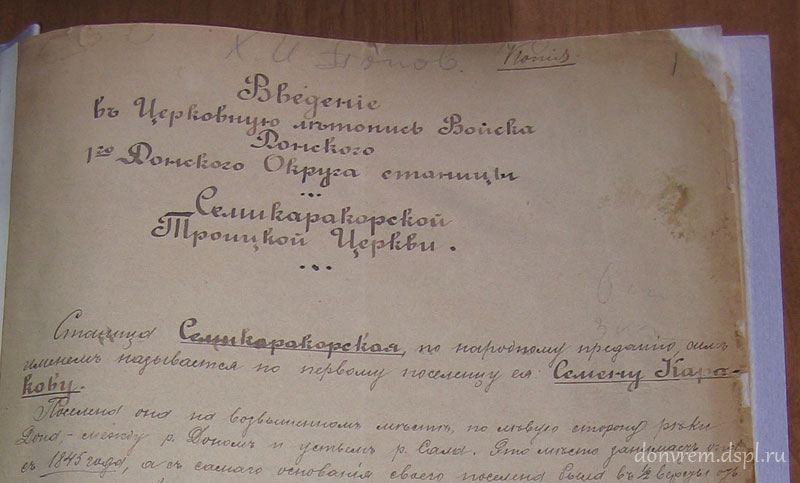 Х. И. Попов.
Копiя.
1
Введенiе
въ Церковную лѣтопись Войска
Донского
1го Донского Округа станицы
Семикаракорской
Троицкой Церкви.
Станица Семикаракорская, по народному преданiю, симъ
именемъ называется по первому поселенцу ея Семену Кара-
кову.
Поселена она на возвышенномъ мѣстѣ, по лѣвую сторону рѣки
Дона, между р. Дономъ и устьемъ р. Сала. Это мѣсто занимаетъ
съ 1845 года, а съ самаго основанiя своего поселена была въ ½ верстѣ отъ
donvrem.dspl.ru